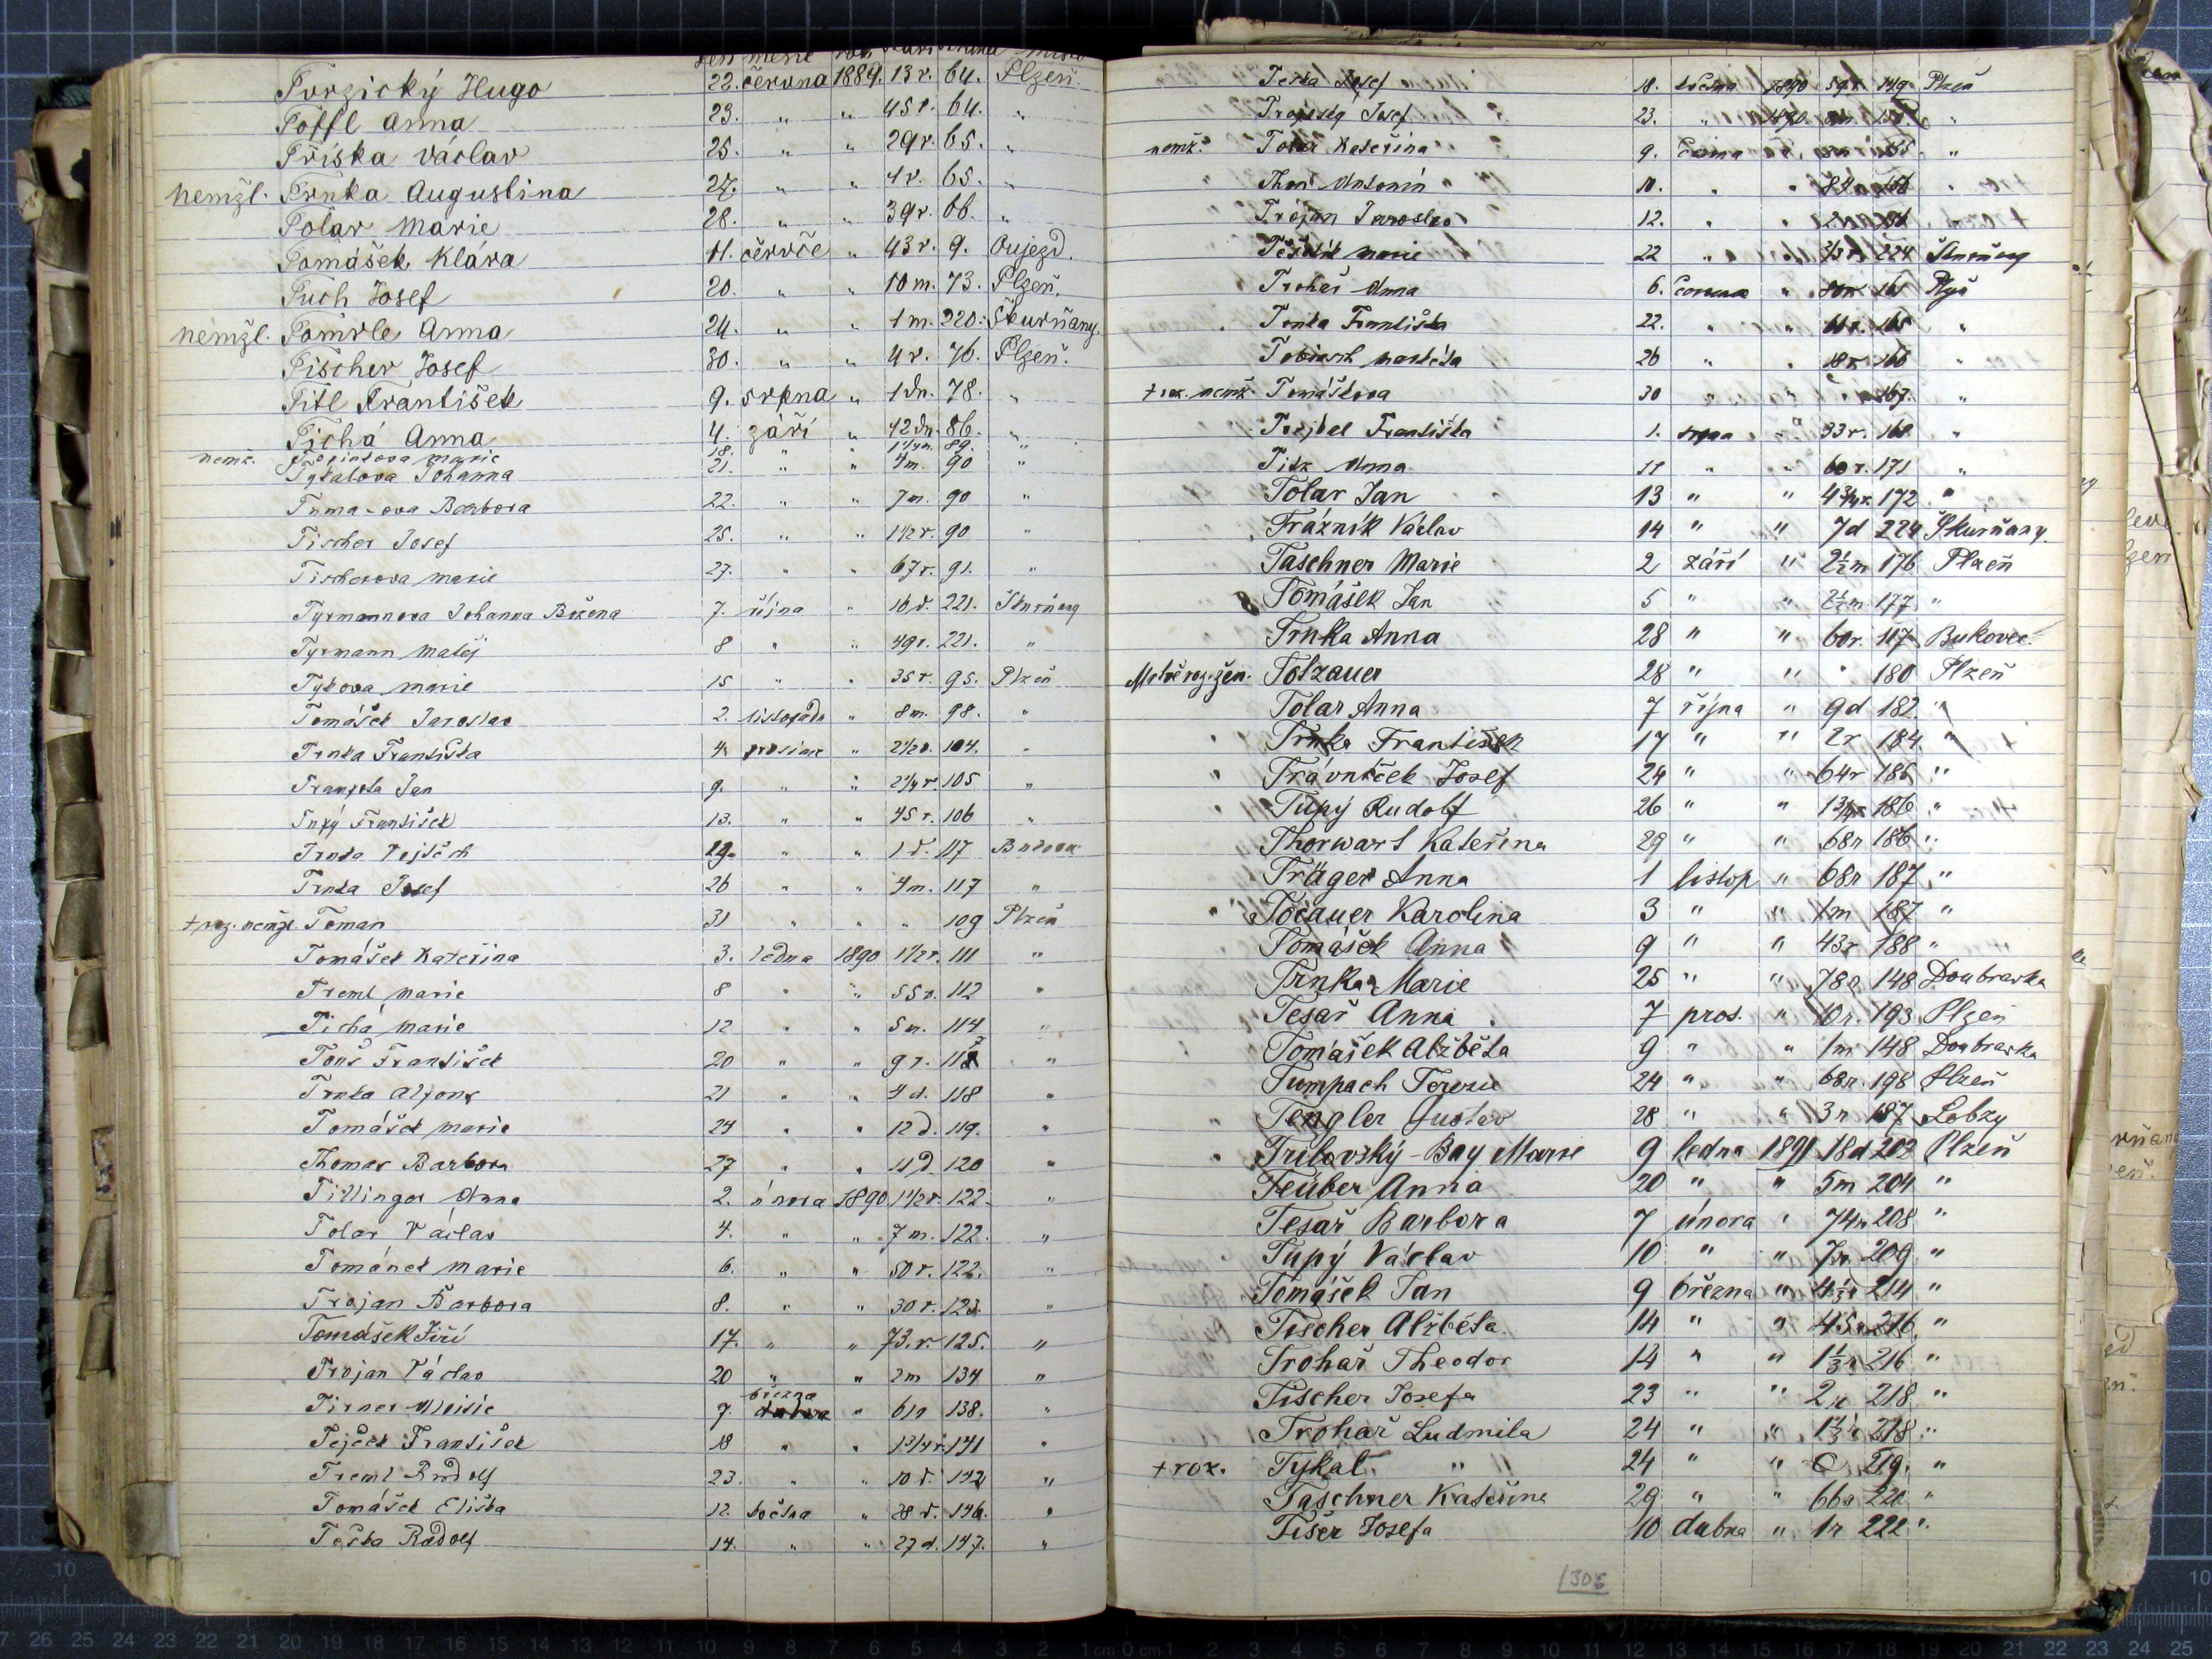 den měsíc rok stáří strana místo
Turzický Hugo 22. června 1889. 13 r. 64. Plzeň.
Töffl Anna 23. " " 45 r. 64. "
Tříska Václav 25. " " 29 r. 65. "
nemžl. Trnka Augustina 27. " " 1 r. 65. "
Tolar Marie 28. " " 39 r. 66. "
Tomášek Klára 11. červče " 43 r. 9. Oujezd.
Tuch Josef 20. " " 10 m. 73. Plzeň.
nemžl. Anna 24. " " 1 m. 220. Škurňany.
Tischer Josef 30. " " 4 r. 76. Plzeň.
Titl František 9. srpna " 1 dn. 78. "
Tichá Anna 4. září " 42 dn. 86. "
nemž. Marie 18. " " 89. "
Tykalova Johanna 21. " " 4 m. 90 "
Barbora 22. " " 7 m. 90 "
Tischer Josef 25. " " 1 1/2 r. 90 "
Tischerova Marie 27. " " 67 r. 91. "
Tyrmannova Johanna Božena 7. října " 16 d. 221. Škurňany
Tyrmann Matěj 8 " " 49 r. 221. "
Tykova Marie 15 " " 35 r. 95. Plzeň
Tomášek Jaroslav 2. listopadu " 8 m. 98. "
Trnka Františka 4. prosince " 2 1/2 r. 104. "
Jan 9. " " 2 1/4 r. 105 "
Tupý František 13. " " 45 r. 106 "
Trnka Vojtěch 19. " " 1 d. 117 Bukovec
Trnka Josef 26 " " 4 m. 117 "
+ roz. nemžl. Toman 31 " " " 109 Plzeň
Tomášek Kateřina 3. ledna 1890 1 1/2 r. 111 "
Treml Marie 8 " " 55 r. 112 "
Tichá Marie 12 " " 5 m. 114 "
Tonš František 20 " " 9 r. "
Trnka Alfons 21 " " 4 d. 118 "
Tomášek Marie 24 " " 12 d. 119. "
Thomas Barbora 27 " " 11 d 120 "
Tillinger Anna 2. února 1890 1 1/2 r. 122. "
Tolar Václav 4. " " 7 m. 122. "
Tománek Marie 6. " " 50 r. 122. "
Trojan Barbora 8. " " 30 r. 123. "
Tomášek Jiří 17. " " 73. r. 125. "
Trojan Václav 20 " " 2 m 134 "
Tirner Aloisie 9. března " 138. "
Tejček František 18 " " 1 3/4 r. 141 "
Treml Rudolf 23. " " 10 d. 142 "
Tomášek Eliška 12. května " 28 d. 146. "
Teska Rudolf 14. " " 27 d. 147. "
Teska Josef 18. května 1890 149. Plzeň
Josef 23. " 1890 "
nemž. Tolar Kateřina 9. června "
Antonín 10. " " "
Trojan Jaroslav 12. " "
Marie 22 " " 224 Škurňany
Trohař Anna 6. " 165
Tonka Františka 22. " " 165 "
Tobiasch Markéta 26 " " 18 r. 166 "
+ roz. nemž. Tomáškova 30 " " " 167. "
Trejbal Františka 1. srpna " 33 r. 169 "
Titz Anna 11 " " 60 r. 171 "
Tolar Jan 13 " " 4 3/4 r. 172 "
Trázník Václav 14 " " 7 d 224 Škurňany.
Taschner Marie 2 září " 2 1/2 m 176 Plzeň
Tomášek Jan 5 " " 2 1/2 m. 177 "
Trnka Anna 28 " " 60 r. 117 Bukovec.
Mrtvě roz. žen. Totzauer 28 " " " 180 Plzeň
Tolar Anna 7 října " 9 d 182. "
Trnka František 17 " " 2 r 184 "
Trávníček Josef 24 " " 64 r 185 "
Tupý Rudolf 26 " " 1 3/4 r 186 "
Thorwart Kateřina 29 " " 68 r 186 "
Träger Anna 1 listop " 68 r 187 "
Točauer Karolina 3 " " 1 m 187 "
Tomášek Anna 9 " " 43 r 188 "
Trnka Marie 25 " " 78 r 148 Doubravka
Tesař Anna 7 pros. " 10 r. 193 Plzeň
Tomášek Alžběta 9 " " 1 m 148 Doubravka
Tumpach Terezie 24 " " 68 r. 198 Plzeň
Tengler Gustav 28 " " 3 r 187 Lobzy
Trilovský-Bay Marie 9 ledna 1891 18 d 202 Plzeň
Teüber Anna 20 " " 5 m 204 "
Tesař Barbora 7 února " 74 r 208 "
Tupý Václav 10 " " 209 "
Tomášek Jan 9 března " 214 "
Tischer Alžběta 14 " " 45 r 216 "
Trohař Theodor 14 " " 1 1/3 r 216 "
Tischer Josefa 23 " " 2 r 218 "
Trohař Ludmila 24 " " 218 "
+ roz. Tykal " 24 " " 0 219. "
Taschner Kateřina 29 " " 66 r 220 "
Tišer Josefa 10 dubna " 1 r 222 "